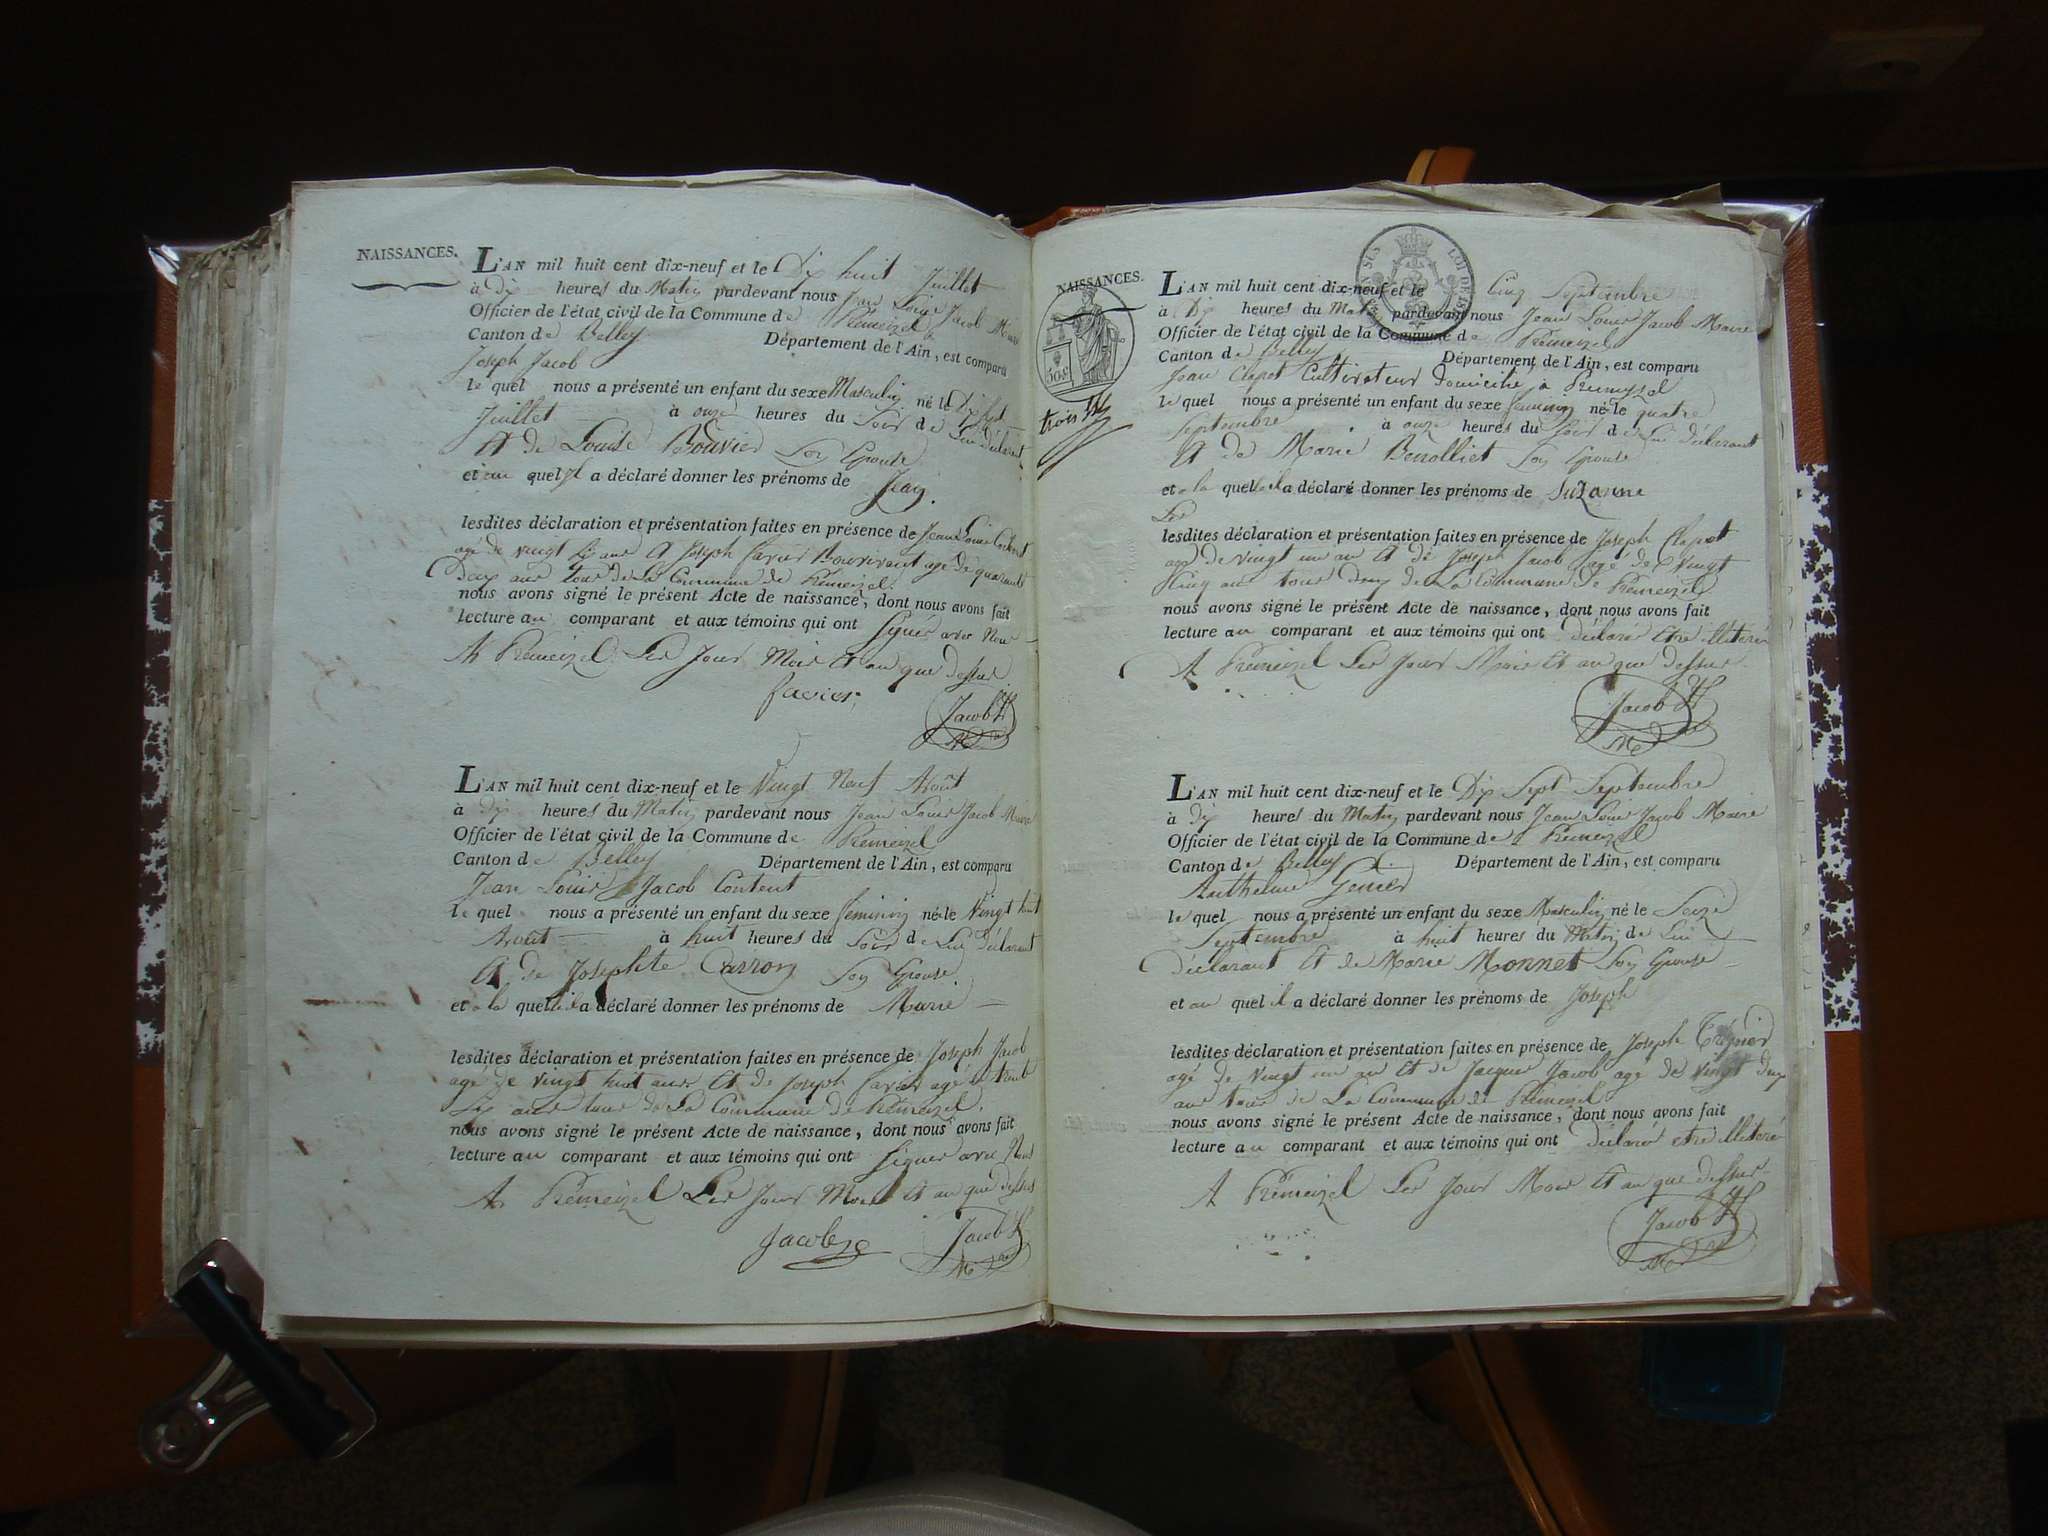 NAISSANCES.
L'AN mil huit cent dix-neuf et le Dix huit Juillet
à dix heures du Matin pardevant nous Jean Louis Jacob Maire
Officier de l'état civil de la Commune de Prémeizel
Canton de Belley Département de l'Ain, est comparu
Joseph Jacob
le quel nous a présenté un enfant du sexe Masculin né le Dix Sept
Juillet à onze heures du Soir de Lui déclarant
Et de Louise Bouvier Son Epouse
et au quel il a déclaré donner les prénoms de Jean.
lesdites déclaration et présentation faites en présence de Jean Louis
agé de vingt Six ans Et Joseph favier agé de quarante
Deux ans tous de La Commune de Prémeizel.
nous avons signé le présent Acte de naissance, dont nous avons fait
lecture au comparant et aux témoins qui ont Signés avec Nous
A Prémeizel Les Jour Mois Et an que dessus
favier
Jacob
L'AN mil huit cent dix-neuf et le Vingt Neuf Août
à dix heures du Matin pardevant nous Jean Louis Jacob Maire
Officier de l'état civil de la Commune de Prémeizel
Canton de Belley Département de l'Ain, est comparu
Jean Louis Jacob Content
le quel nous a présenté un enfant du sexe feminin né le Vingt huit
Août à huit heures du Soir de Lui déclarant
Et de Josephte Carron Son Epouse
et a la quelle il a déclaré donner les prénoms de Marie
lesdites déclaration et présentation faites en présence de Joseph Jacob
agé de vingt huit ans Et de Joseph favier agé de trente
Six ans tous de La Commune de Prémeizel.
nous avons signé le présent Acte de naissance, dont nous avons fait
lecture au comparant et aux témoins qui ont Signés avec Nous
A Prémeizel Les Jour Mois Et an que dessus
Jacob
Jacob
NAISSANCES.
LOI DE
50c
trois
L'AN mil huit cent dix-neuf et le Cinq Septembre
à Dix heures du Matin pardevant nous Jean Louis Jacob Maire
Officier de l'état civil de la Commune de Prémeizel
Canton de Belley Département de l'Ain, est comparu
Jean Clapot Cultivateur Domicilié à Premeyzel
le quel nous a présenté un enfant du sexe feminin né le quatre
Septembre à onze heures du Soir de Lui déclarant
Et de Marie Benolliet Son Epouse
et a la quelle il a déclaré donner les prénoms de Suzanne
Les
lesdites déclaration et présentation faites en présence de Joseph Clapot
agé de vingt un an Et de Joseph Jacob agé de Vingt
Cinq ans tous deux de La Commune de Prémeizel
nous avons signé le présent Acte de naissance, dont nous avons fait
lecture au comparant et aux témoins qui ont déclaré Etre illiteré
A Prémeizel Les Jour Mois Et an que dessus
Jacob
L'AN mil huit cent dix-neuf et le Dix Sept Septembre
à dix heures du Matin pardevant nous Jean Louis Jacob Maire
Officier de l'état civil de la Commune de Prémeizel
Canton de Belley Département de l'Ain, est comparu
Anthelme
le quel nous a présenté un enfant du sexe Masculin né le Seize
Septembre à huit heures du Matin de Lui
déclarant Et de Marie Monnet Son Epouse
et au quel il a déclaré donner les prénoms de Joseph
lesdites déclaration et présentation faites en présence de Joseph
agé de Vingt un an Et de Jacque Jacob agé de Vingt deux
ans tous de La Commune de Prémeizel
nous avons signé le présent Acte de naissance, dont nous avons fait
lecture au comparant et aux témoins qui ont déclaré etre illiteré
A Prémeizel Les Jour Mois Et an que dessus
Jacob